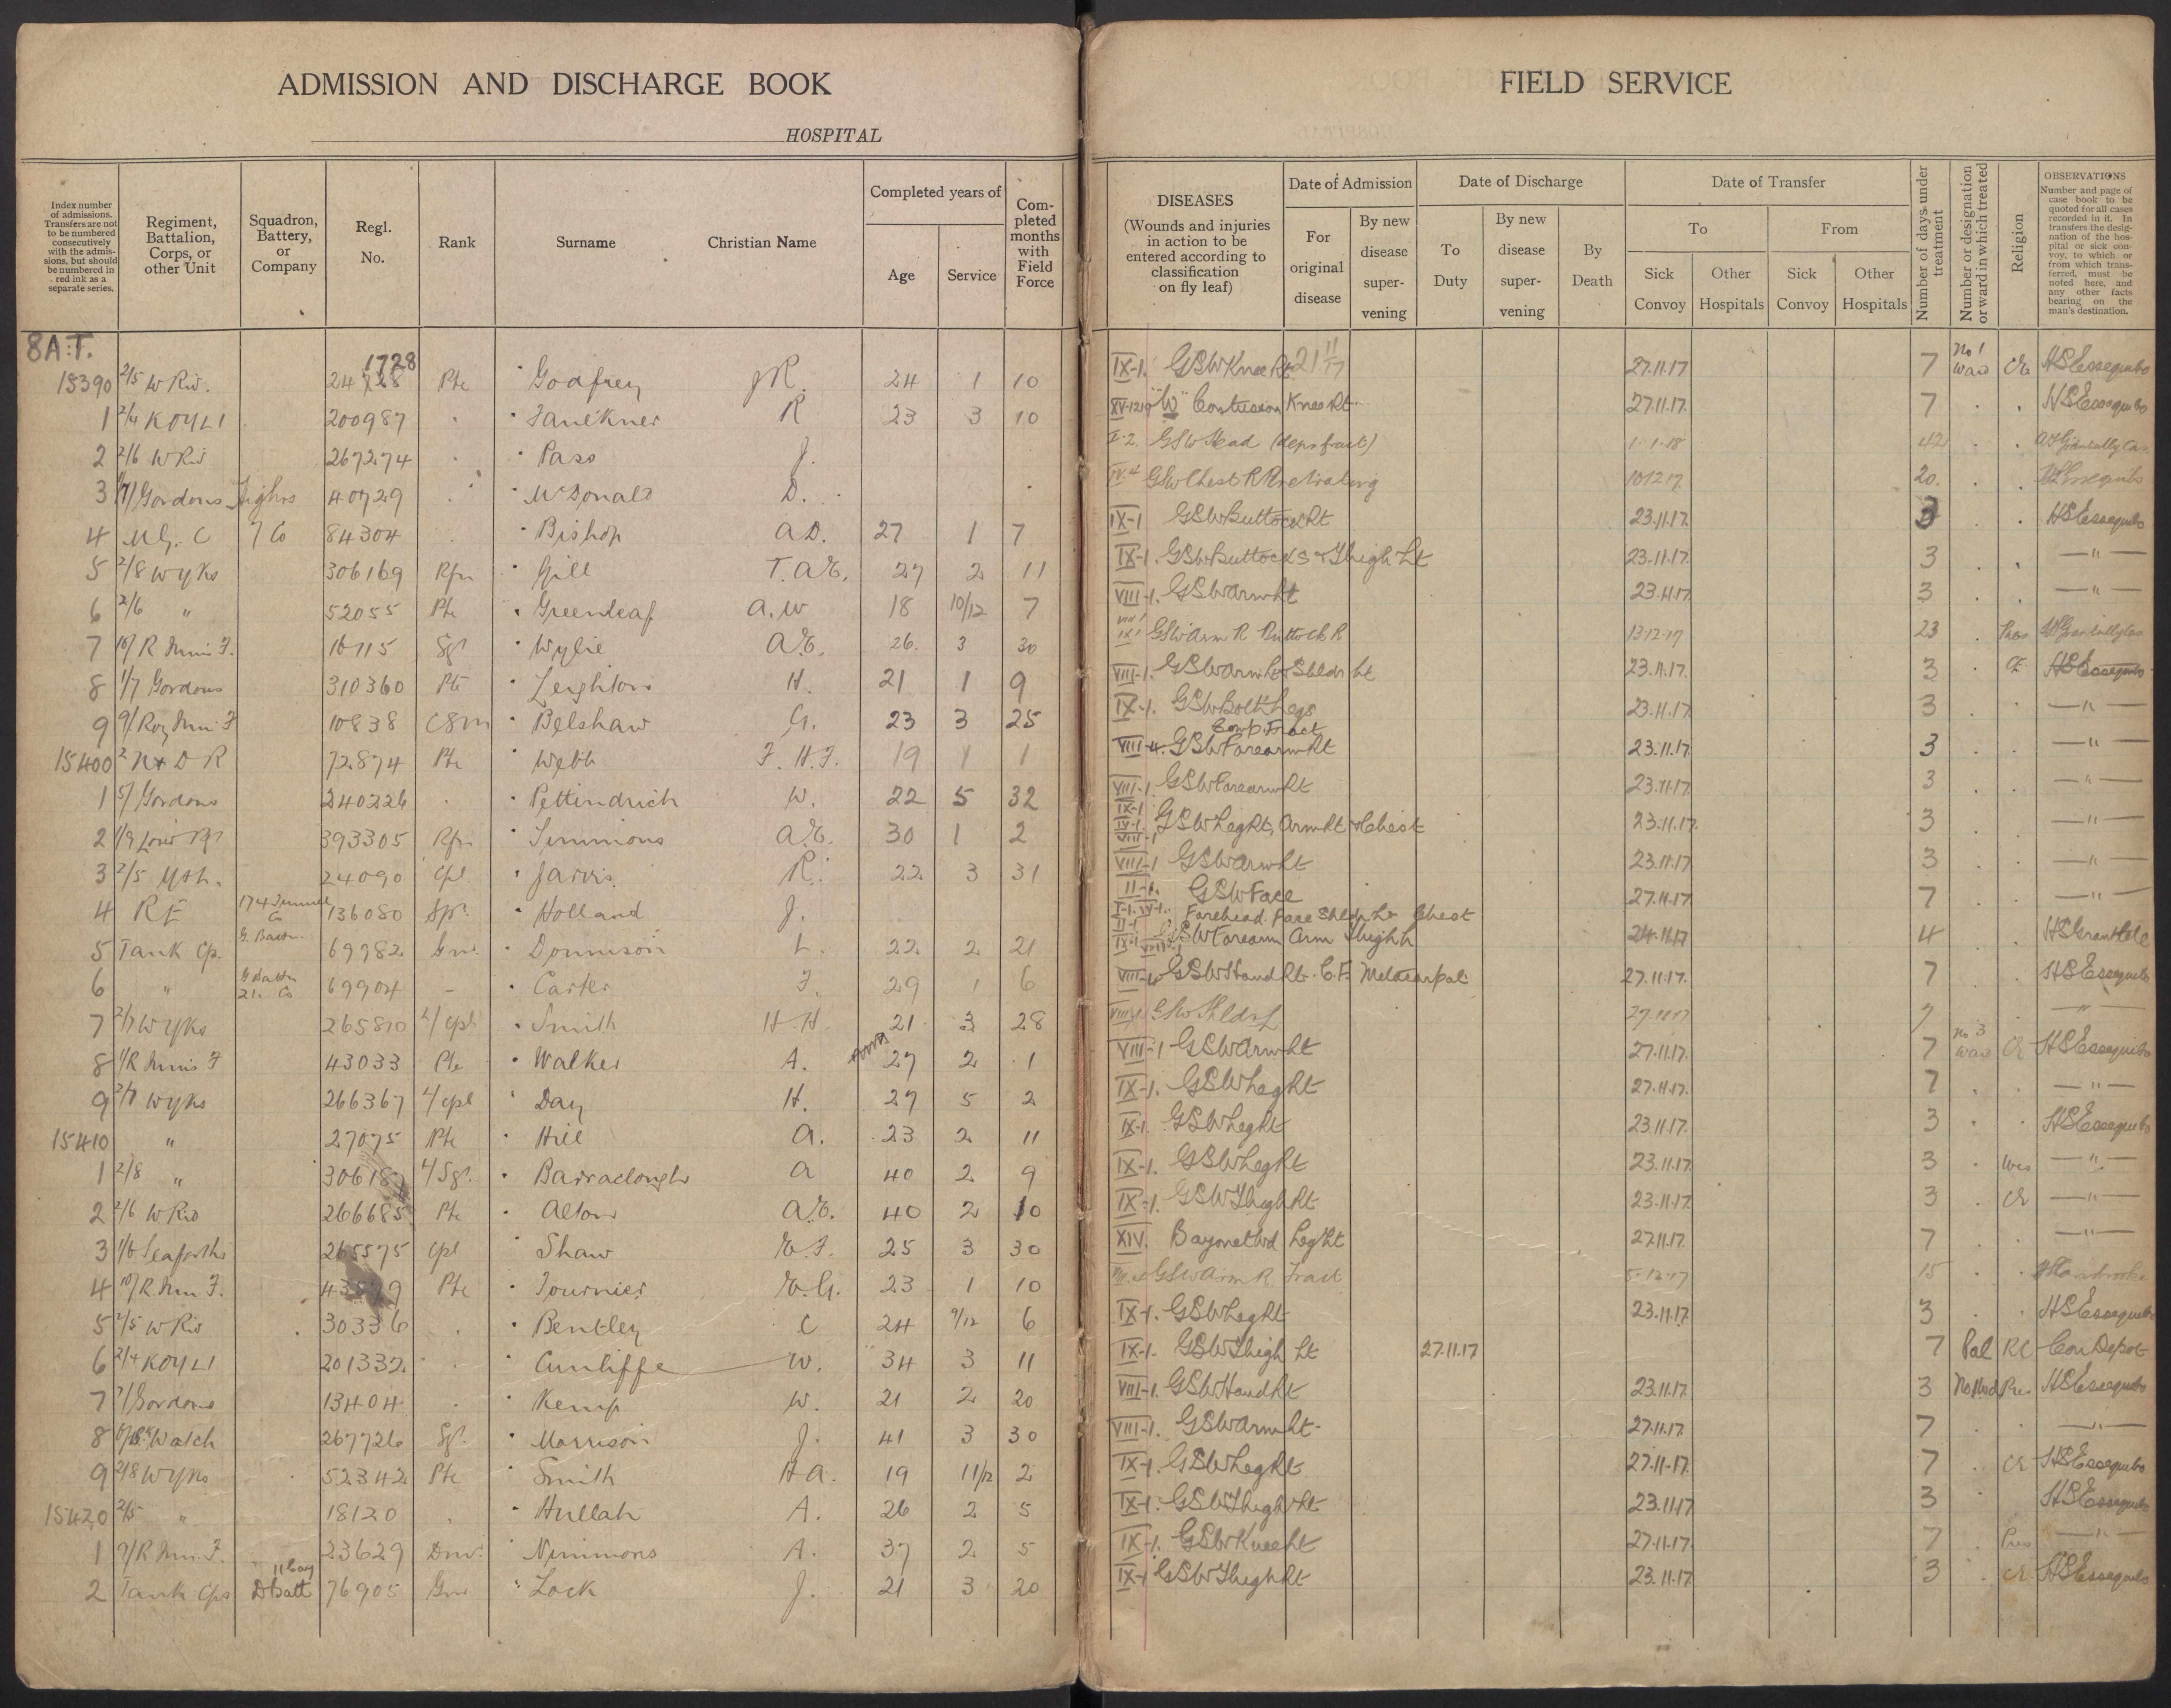 ADMISSION AND DISCHARGE BOOK
HOSPITAL
FIELD SERVICE
Index number of admissions. Transfers are not to be numbered consecutively with the admissions, but should be numbered in red ink as a separate series.
Regiment, Battalion, Corps, or other Unit
Squadron, Battery, or Company
Regl. No.
Rank
Surname
Christian Name
Completed years of
Age
Service
Completed months with Field Force
DISEASES
(Wounds and injuries in action to be entered according to classification on fly leaf)
Date of Admission
For original disease
By new disease supervening
Date of Discharge
To Duty
By new disease supervening
By Death
Date of Transfer
To
From
Sick Convoy
Other Hospitals
Sick Convoy
Other Hospitals
Number of days under treatment
Number or designation of ward in which treated
Religion
OBSERVATIONS
Number and page of case book to be quoted for all cases recorded in it. In transfers the designation of the hospital or sick convoy, to which or from which transferred, must be noted here, and any other facts bearing on the man's destination.
8 A.T.
1728
15390 2/5 W Rid. Pte Godfrey R. 24 1 10 IX-1. GSW Knee Rt 21/11/17 27.11.17 7 No 1 Ward CE HS Essequibo
1 2/4 KOYLI 200987 " Faulkner R 23 3 10 "W" Contusion Knee Rt. 27.11.17 7 HS Essequibo
2 2/6 W Rid 267274 " Pass J. I-2. GSW Head (deps fract) 1-1-18 42
3 Gordons Highrs 40729 " McDonald D. IV.4 GSW Chest R Penetrating 10.12.17 20. HS Essequibo
4 M.G.C 7 Co 84304 Bishop A.D. 27 1 7 IX-1 GSW Buttock Rt 23.11.17 3 HS Essequibo
5 2/8 W Yks 306169 Rfn Gill T.A.E. 27 2 11 IX-1. GSW Buttocks & Thigh Lt 23.11.17. 3 — " —
6 2/6 " 52055 Pte Greenleaf A.W 18 10/12 7 VIII-1. GSW Arm Rt 23.11.17 3 — " —
7 10/ R Innis F. Sgt Wylie A.E. 26. 3 30 GSW Arm R Buttock R 13-12-17 23 Pres
8 1/7 Gordons 310360 Pte Leighton H. 21 1 9 VIII-1. GSW Arm Lt & Shldr Lt 23.11.17. 3 CE HS Essequibo
9 9/ Roy Inni F 10838 CSM Belshaw G. 23 3 25 IX-1. GSW Both Legs 23.11.17 3 — " —
Comp Fract
15400 2 N & D R 72874 Pte Webb F.H.F. 19 1 1 VIII-4. GSW Forearm Rt 23.11.17. 3 — " —
1 5/ Gordons 240226 " Pettindrich W. 22 5 32 VIII-1. GSW Forearm Rt 23.11.17. 3 — " —
2 1/9 Lond Rgt 393305 Rfn Simmons A.E. 30 1 2 IX-1 IV-1. VIII-1 GSW Leg Rt, Arm Rt & Chest 23.11.17. 3 — " —
3 2/5 Y & L. 24090 Cpl. Jarvis R. 22 3 31 VIII-1 GSW Arm Rt 23.11.17 3 — " —
4 RE 174 Tunnel Co 136080 Spr. Holland J. II-1. GSW Face 27.11.17 7 — " —
Forehead. Face Shldr Lt Chest
5 Tank Cp. G. Battn. 69982 Gnr. Donnison L. 22 2 21 GSW Forearm Arm Thigh 24.11.17 4
6 " G Battn 21. Co 69904 - Carter F. 29 1 6 VIII-4 GSW Hand Rt. C.F. Metacarpal 27.11.17. 7 HS Essequibo
7 2/7 W Yks 265810 L/Cpl Smith H.H. 21 3 28 VIII-1. GSW Shldr L 27.11.17 7 — " —
8 1/R Innis F 43033 Pte Walker A. 27 2 1 VIII-1 GSW Arm Rt 27.11.17. 7 No 3 Ward CE HS Essequibo
9 2/7 W Yks 266367 L/Cpl Day H. 27 5 2 IX-1. GSW Leg Rt 27.11.17. 7 — " —
15410 " 27075 Pte Hill A. 23 2 11 IX-1. GSW Leg Rt 23.11.17. 3 HS Essequibo
1 2/8 " 306187 L/Sgt. Barraclough A 40 2 9 IX-1. GSW Leg Rt 23.11.17 3 Wes — " —
2 2/6 W Rid 266685 Pte Alton A.E. 40 2 10 IX-1. GSW Thigh Rt 23.11.17. 3 CE — " —
3 1/6 Seaforths 265575 Cpl Shaw E.F. 25 3 30 XIV. Bayonet Wd Leg Rt 27.11.17. 7 — " —
4 10/ R. Inn F. Pte Fournier E.G. 23 1 10 GSW Arm R Fract 5-12-17 15
5 2/5 W Rid 30336 " Bentley C 24 9/12 6 IX-1. GSW Leg Rt 23.11.17 3 HS Essequibo
6 2/4 KOYLI 201332 " Cunliffe W. 34 3 11 IX-1. GSW Thigh Lt 27.11.17 7 Pal RC Con Depot
7 7/ Gordons 13404 " Kemp W. 21 2 20 VIII-1. GSW Hand Rt 23.11.17 3 Pres HS Essequibo
8 Watch 267726 Sgt. Morrison J. 41 3 30 VIII-1. GSW Arm Rt. 27.11.17. 7 — " —
9 2/8 W Yks 52342 Pte Smith H.A. 19 11/12 2 IX-1. GSW Leg Rt 27.11.17. 7 CE HS Essequibo
15420 2/5 " 18120 " Hullah A. 26 2 5 IX-1. GSW Thigh Rt 23.11.17 3 HS Essequibo
1 9/R Inn. F. 23629 Dmr. Nimmons A. 37 2 5 IX-1. GSW Knee Rt 27.11.17. 7 Pres — " —
2 Tank Cps D Batt 11 Coy 76905 Gnr Lock J. 21 3 20 IX-1 GSW Thigh Rt 23.11.17 3 CE HS Essequibo